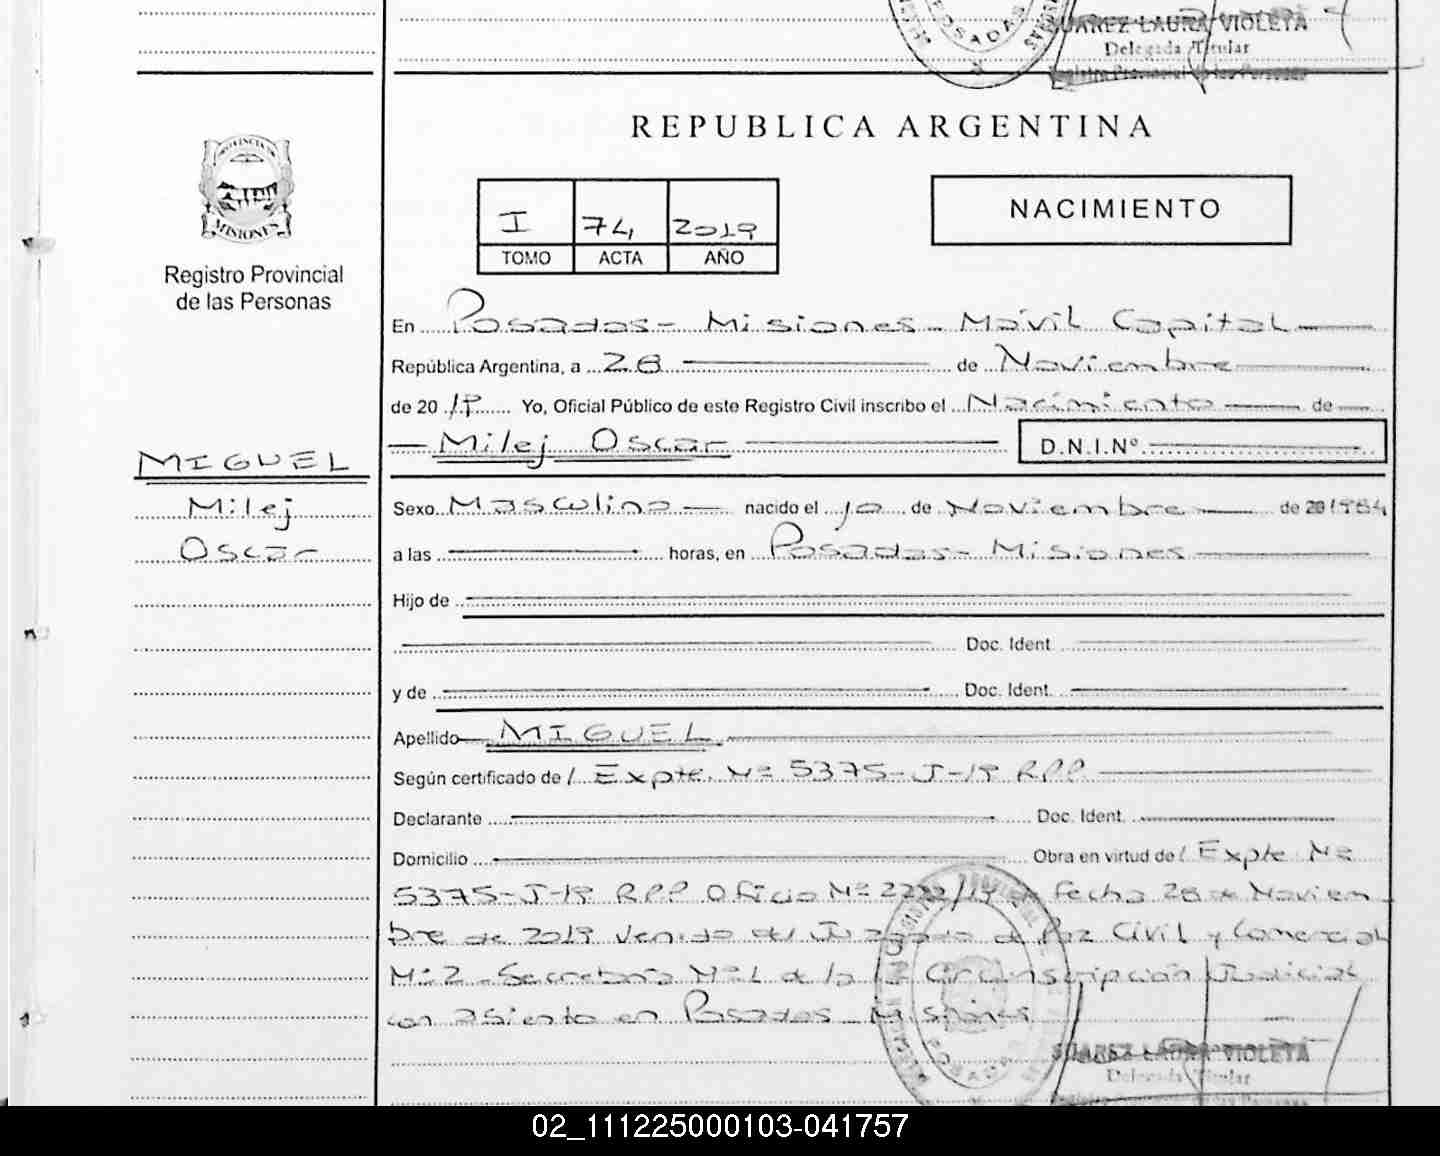 SUAREZ LAURA VIOLETA
Delegada Titular
Registro Provincial de las Personas
POSADAS
REPUBLICA ARGENTINA
PROVINCIA DE
MISIONES
Registro Provincial
de las Personas
I 74 2019
TOMO ACTA AÑO
NACIMIENTO
En Posadas - Misiones - Móvil Capital
República Argentina, a 28 de Noviembre
de 2019 Yo, Oficial Público de este Registro Civil inscribo el Nacimiento de
Milej Oscar D.N.I.Nº
MIGUEL
Milej
Oscar
Sexo Masculino nacido el 10 de Noviembre de 20 1984
a las horas, en Posadas - Misiones
Hijo de
Doc. Ident.
y de Doc. Ident.
Apellido MIGUEL
Según certificado de / Expte. Nº 5375-J-19 RPP
Declarante Doc. Ident.
Domicilio Obra en virtud de / Expte Nº
5375-J-19 RPP Oficio Nº de fecha 28 de Noviem
bre de 2019 venido del Juzgado de Paz Civil y Comercial
Nº 2 - Secretaría Nº 1 de la Circunscripción Judicial
con asiento en Posadas Misiones
SUAREZ LAURA VIOLETA
Delegada Titular
POSADAS
02_111225000103-041757